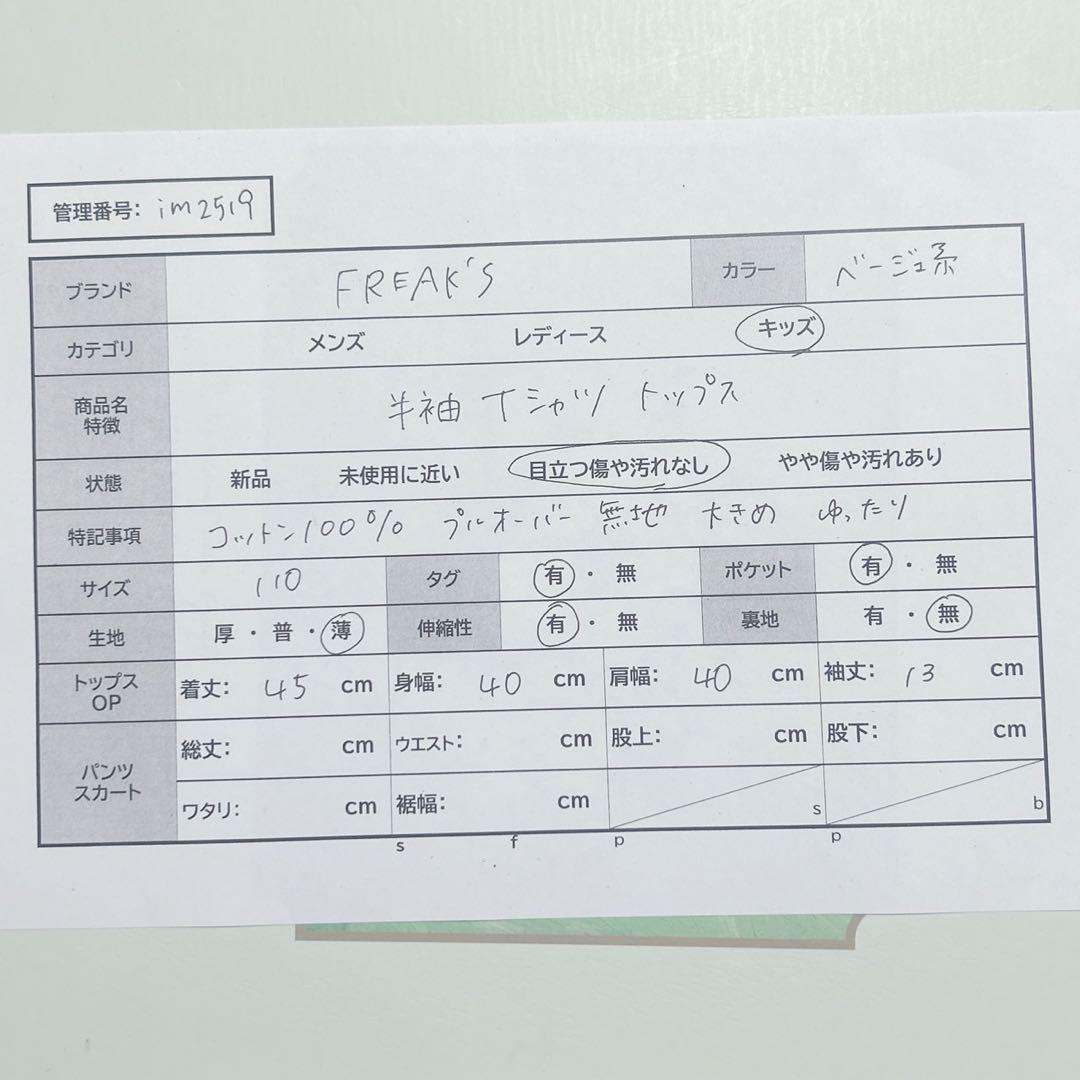 管理番号: im2519
ブランド FREAK'S カラー ベージュ系
カテゴリ メンズ レディース キッズ
商品名
特徴
半袖 Tシャツ トップス
状態 新品 未使用に近い 目立つ傷や汚れなし やや傷や汚れあり
特記事項 コットン100% プルオーバー 無地 大きめ ゆったり
サイズ 110 タグ 有・無 ポケット 有・無
生地 厚・普・薄 伸縮性 有・無 裏地 有・無
トップス
OP
着丈: 45 cm 身幅: 40 cm 肩幅: 40 cm 袖丈: 13 cm
パンツ
スカート
総丈: cm ウエスト: cm 股上: cm 股下: cm
ワタリ: cm 裾幅: cm s b
s f p p